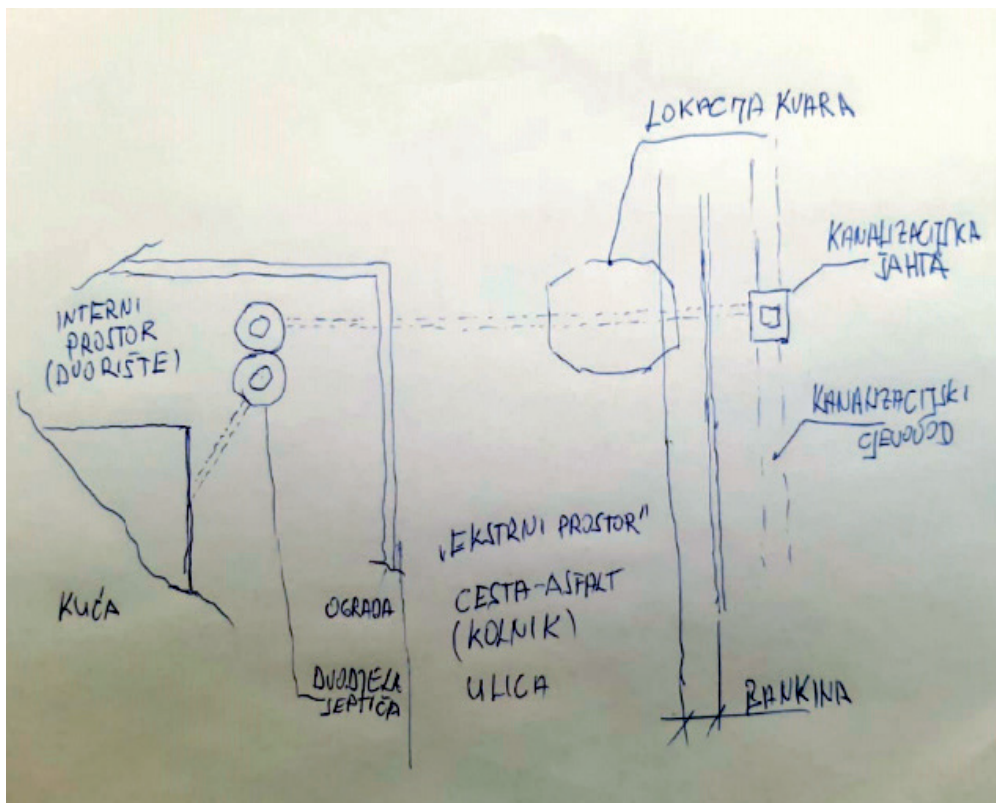 LOKACIJA KVARA
KANALIZACIJSKA
ŠAHTA
INTERNI
PROSTOR
(DVORIŠTE)
KANALIZACIJSKI
CJEVOVOD
„EKSTRNI PROSTOR"
CESTA-ASFALT
(KOLNIK)
ULICA
KUĆA
OGRADA
DVODJELA
SEPTIČA
BANKINA